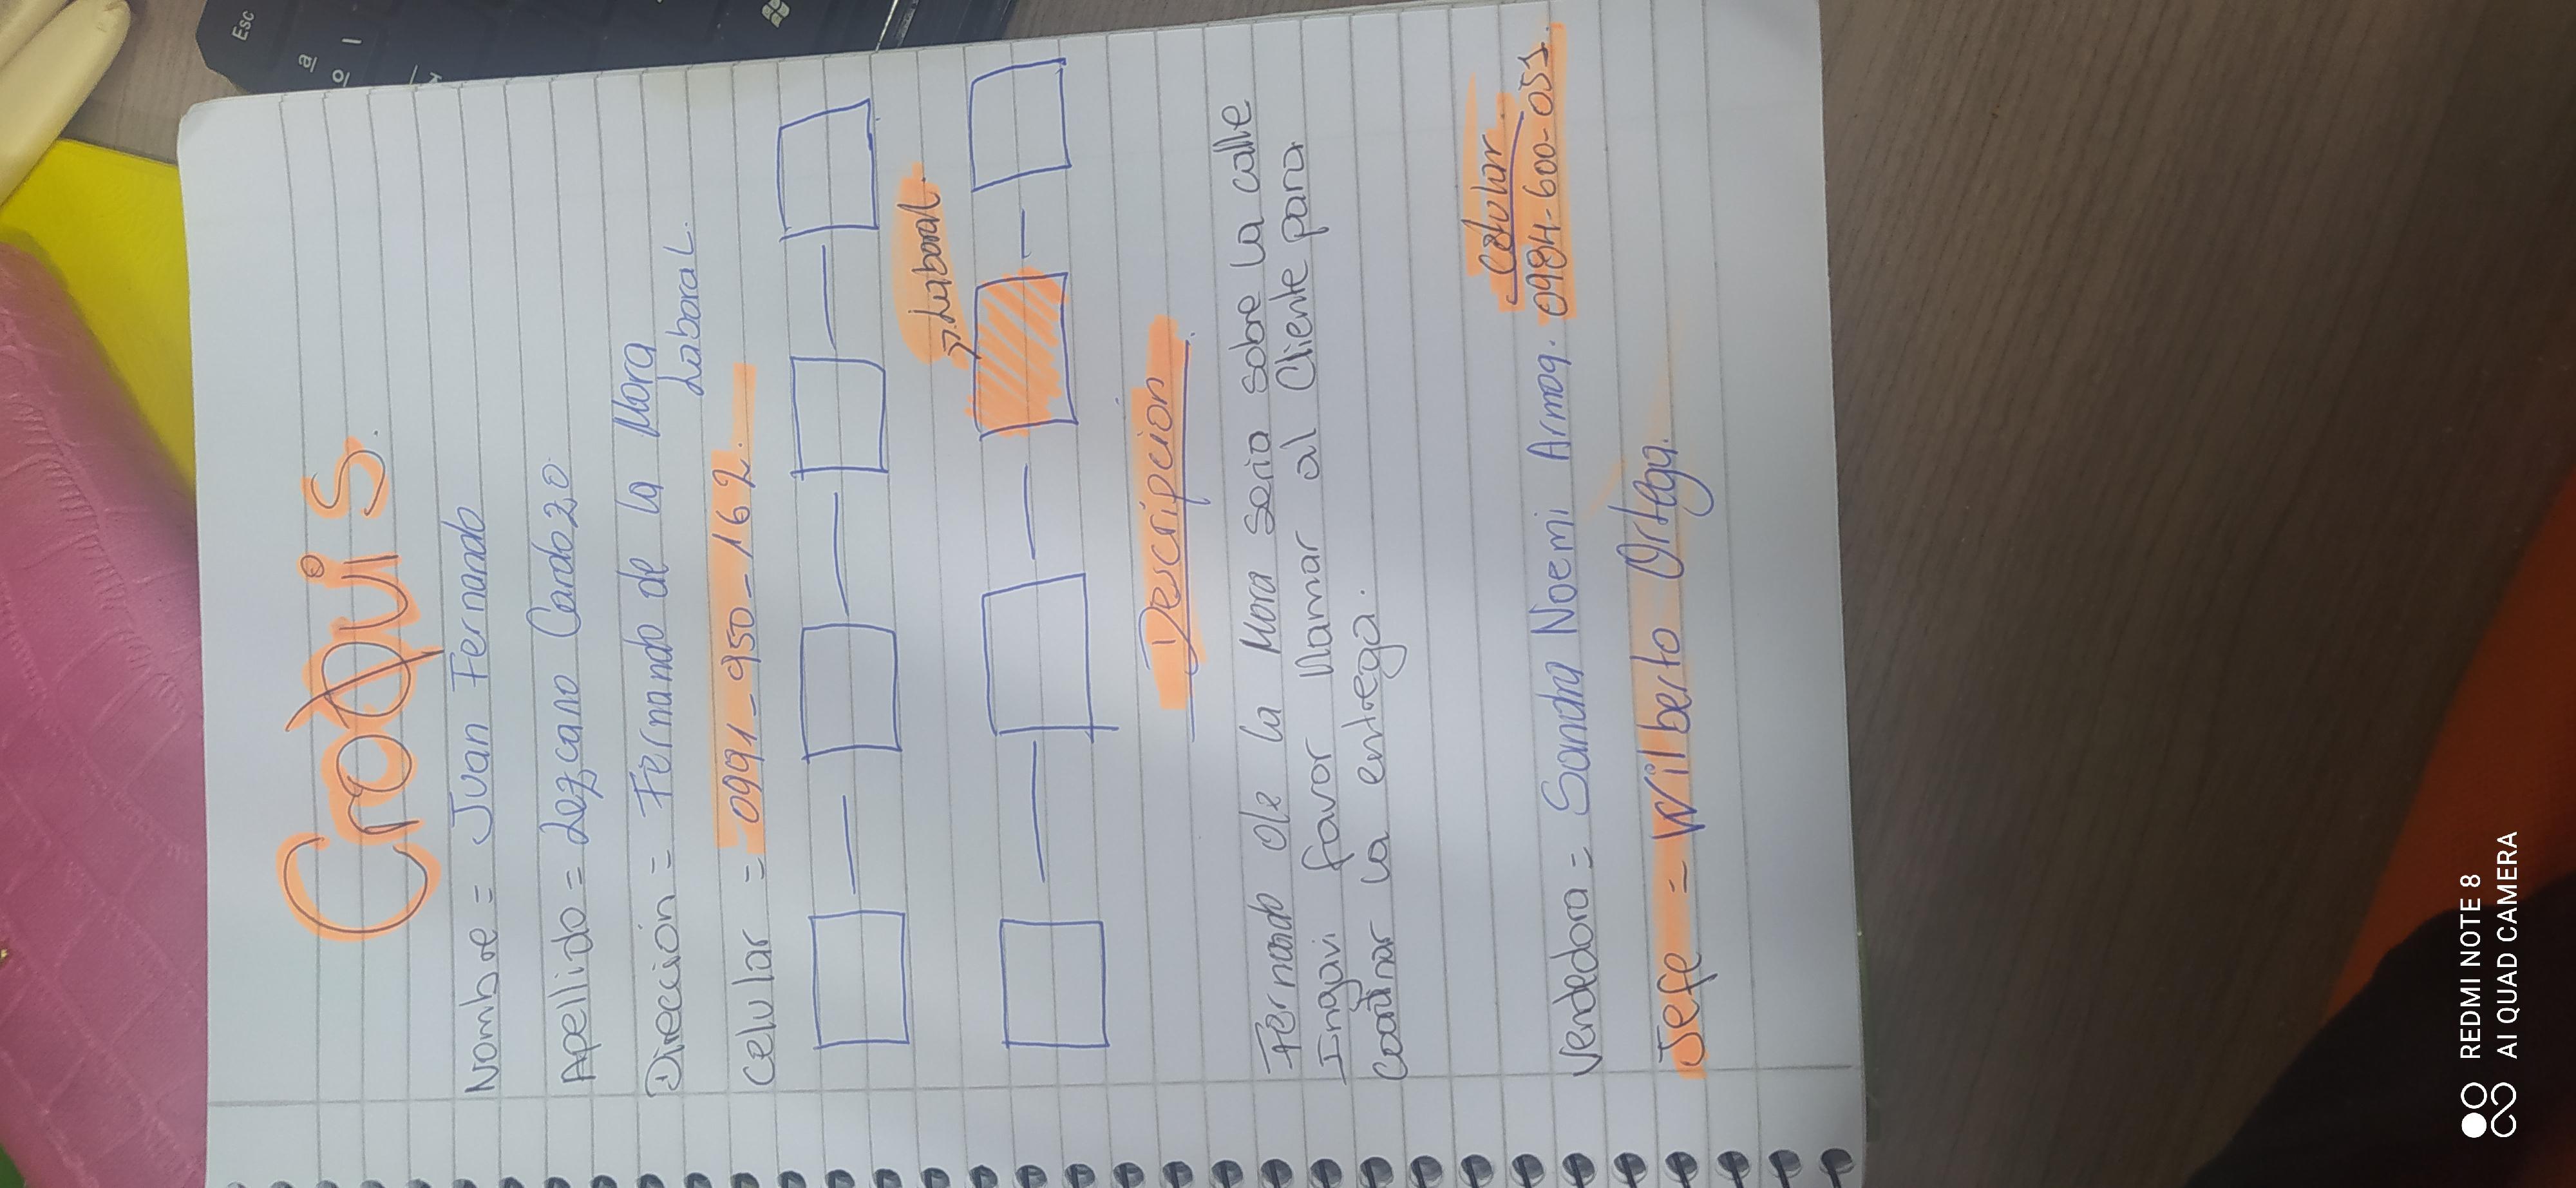 Croquis.
Nombre = Juan Fernando
Apellido = Lezcano Cardozo.
Dirección = Fernando de la Mora
Laboral.
Celular = 0991-950-162.
Laboral.
Descripcion.
Fernando de la Mora seria sobre la calle
Ingavi favor llamar al Cliente para
Coordinar la entrega.
Celular.
Vendedora = Sandra Noemi 0984-600-051.
Jefe = Wilberto Ortega.
Esc
REDMI NOTE 8
AI QUAD CAMERA